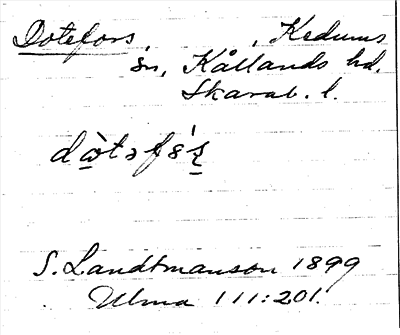 Dotefors, , Kedums
sn, Kållands hd.
Skarab. l.
S. Landtmanson 1899
Ulma 111:201.